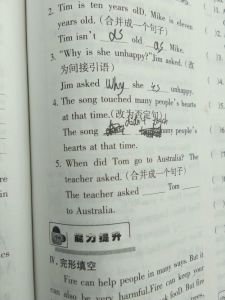 2. Tim is ten years olD. Mike is eleven
years old. (合并成一个句子)
Tim isn't as old as Mike.
3. "Why is she unhappy?" Jim asked. (改
为间接引语)
Jim asked Why she is unhappy.
4. The song touched many people's hearts
at that time. (改为否定句)
The song many people's
hearts at that time.
5. When did Tom go to Australia? The
teacher asked. (合并成一个句子)
The teacher asked ____ Tom ____
to Australia.
能力提升
Ⅳ. 完形填空
Fire can help people in many ways. But it
can also be very harmful. Fire can keep your